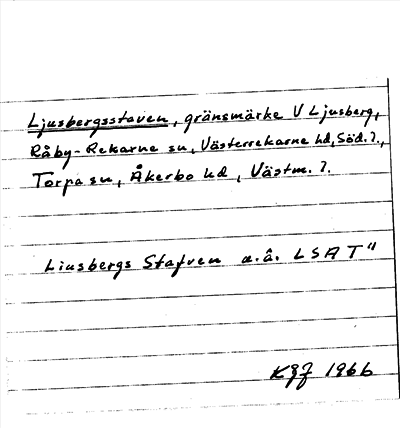 Ljusbergsstaven, gränsmärke V Ljusberg,
Råby-Rekarne sn, Västerrekarne hd, Söd. l.,
Torpa sn, Åkerbo hd, Västm. l.
Liusbergs Stafven a.å. LSA T"
KGF 1966